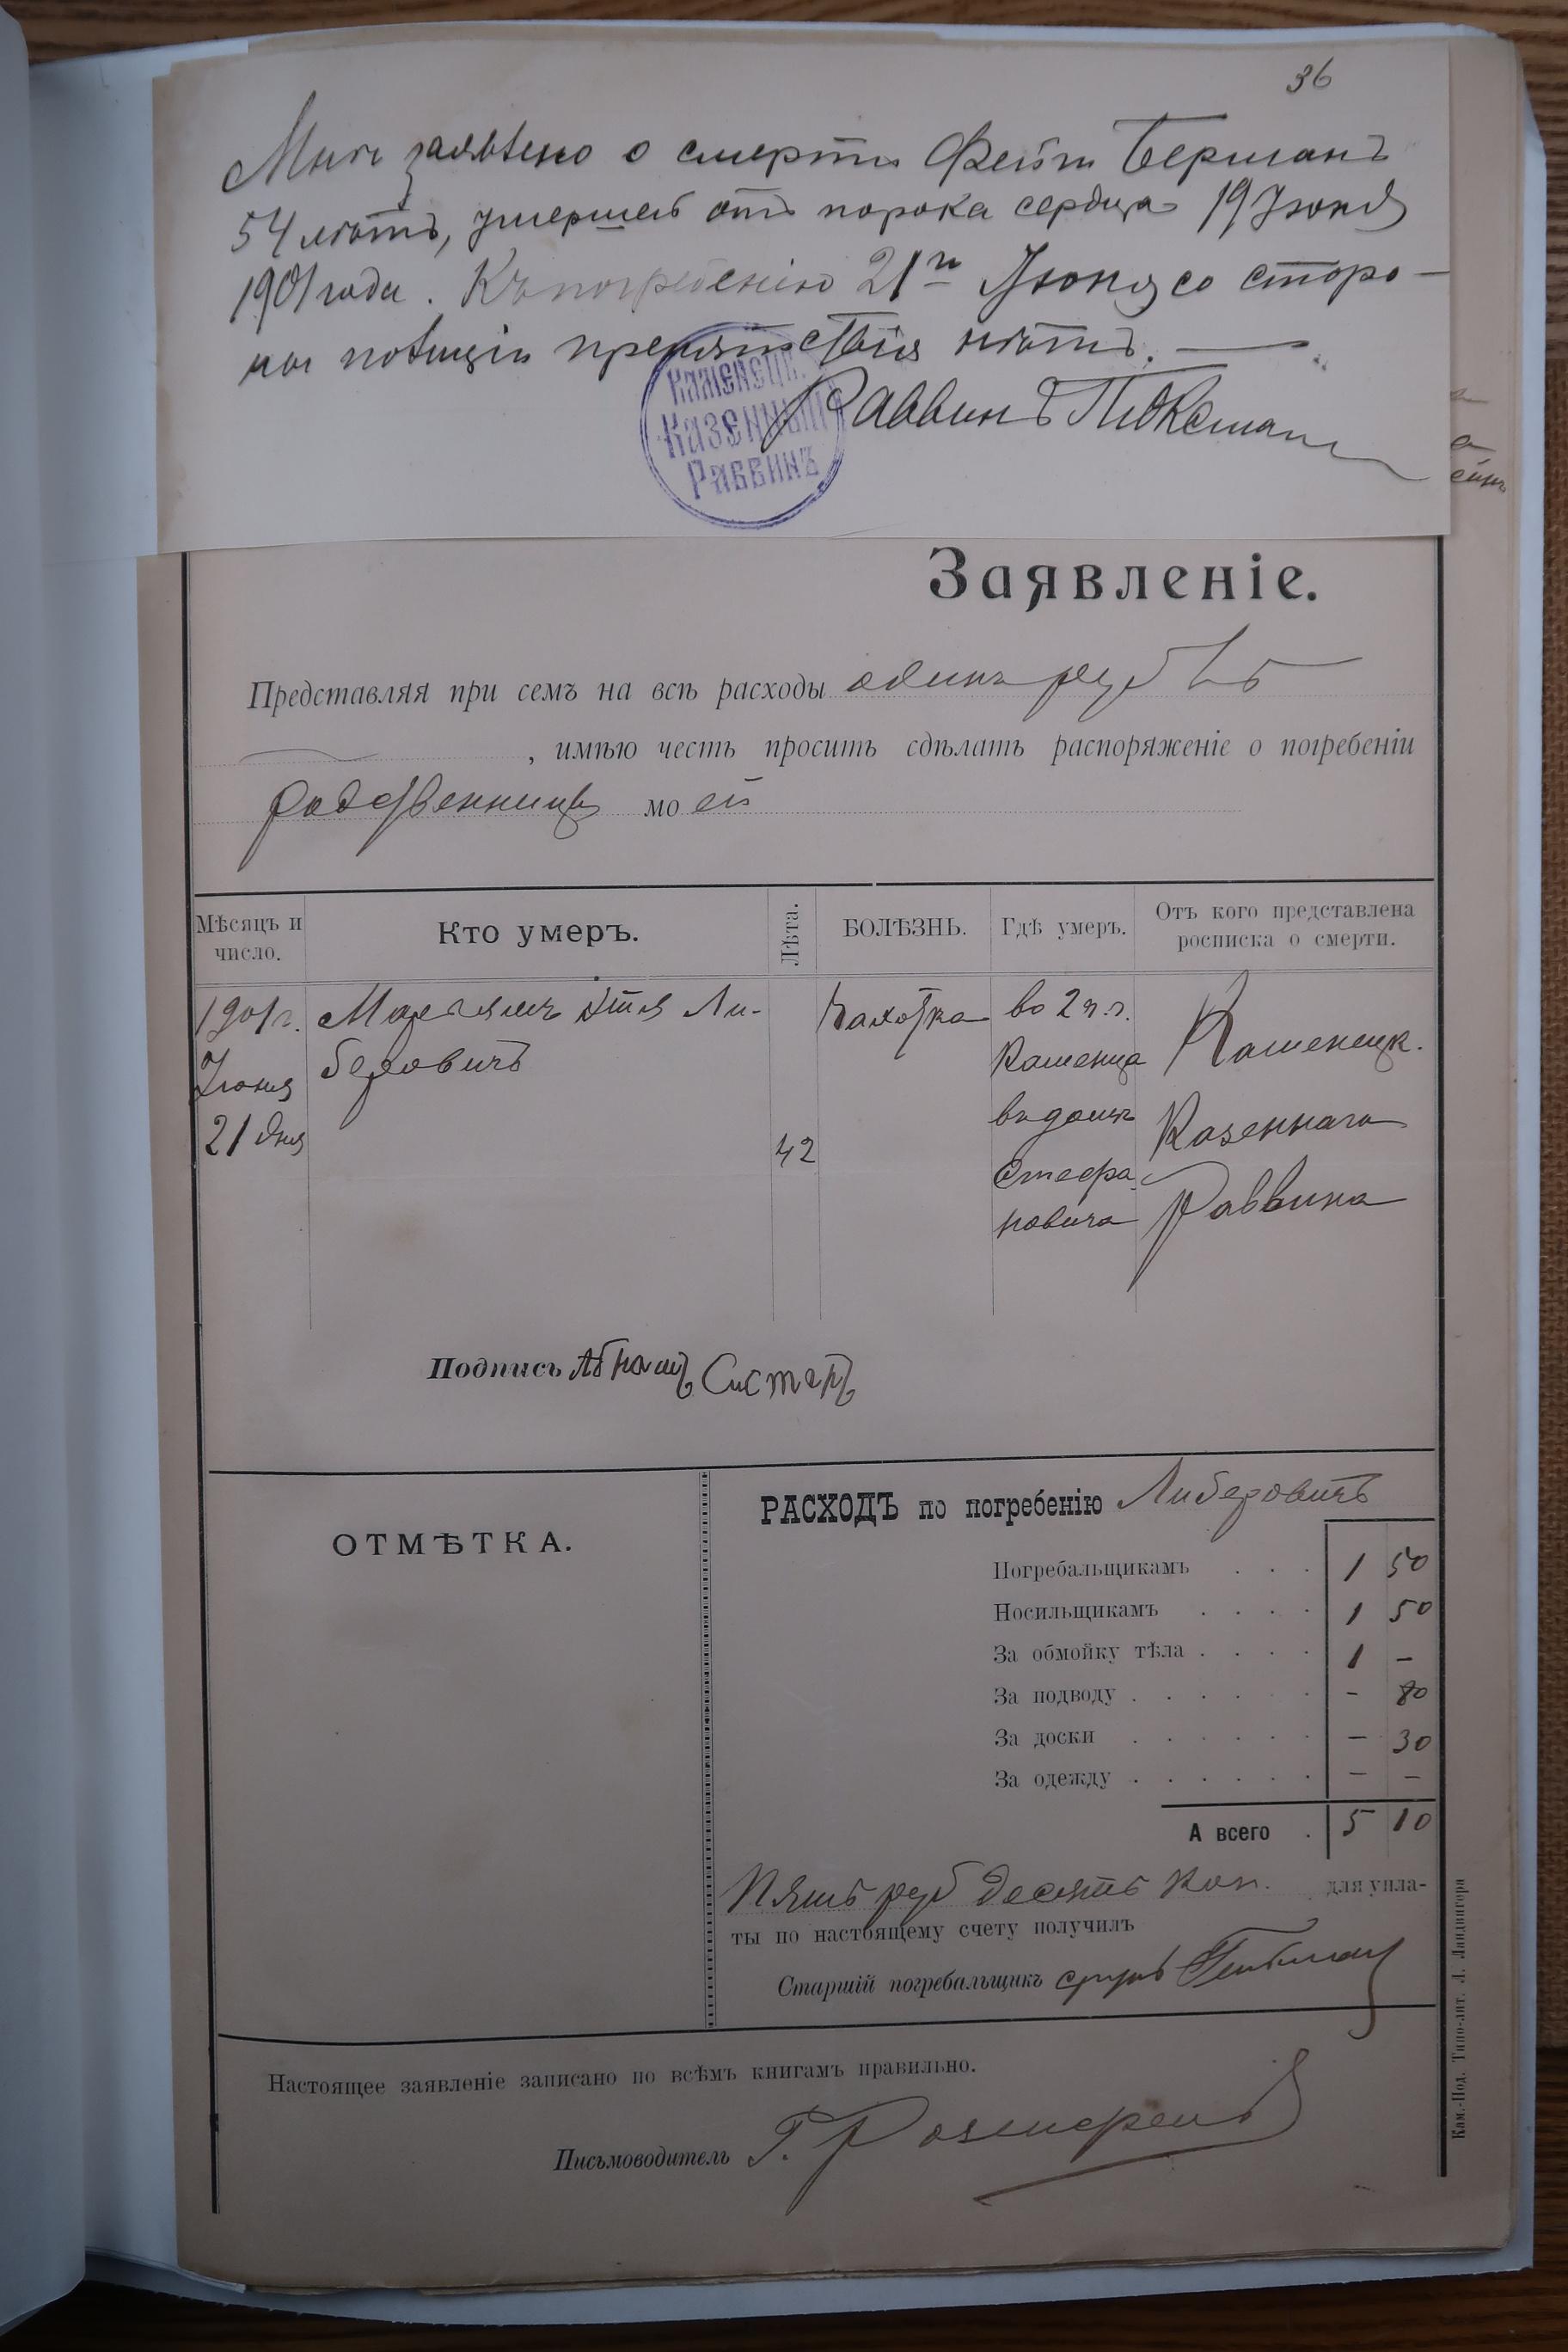 36
Мнѣ заявлено о смерти Фейги Берманъ
54 лѣтъ, умершей отъ порока сердца 19 Іюня
1901 года. Къ погребенію 21го Іюня со сторо-
ны полиціи препятствія нѣтъ.
Раввинъ
Каменецк.
Казенный
Раввинъ
Заявленіе.
Представляя при семъ на всѣ расходы одинъ рубль
, имѣю честь просить сдѣлать распоряженіе о погребеніи
родственницы моей
Мѣсяцъ и число. Кто умеръ. Лѣта. БОЛѢЗНЬ. Гдѣ умеръ. Отъ кого представлена росписка о смерти.
1901 г. Марьямъ Этля Ли- Чахотка во 2 ч. г. Каменецк.
Іюня беровичъ Каменца
21 дня 42 въ домѣ Казеннаго
Стефа-
новича Раввина
Подпись Абрамъ Систеръ
ОТМѢТКА.
РАСХОДЪ по погребенію Либеровичъ
Погребальщикамъ . . . 1 50
Носильщикамъ . . . . 1 50
За обмойку тѣла . . . . 1 –
За подводу . . . . . . – 80
За доски . . . . . . – 30
За одежду . . . . . . – –
А всего . 5 10
Пять руб десять коп. для упла-
ты по настоящему счету получилъ
Старшій погребальщикъ
Настоящее заявленіе записано по всѣмъ книгамъ правильно.
Письмоводитель Г.
Кам.-Под. Типо-лит. Л. Ландвигера